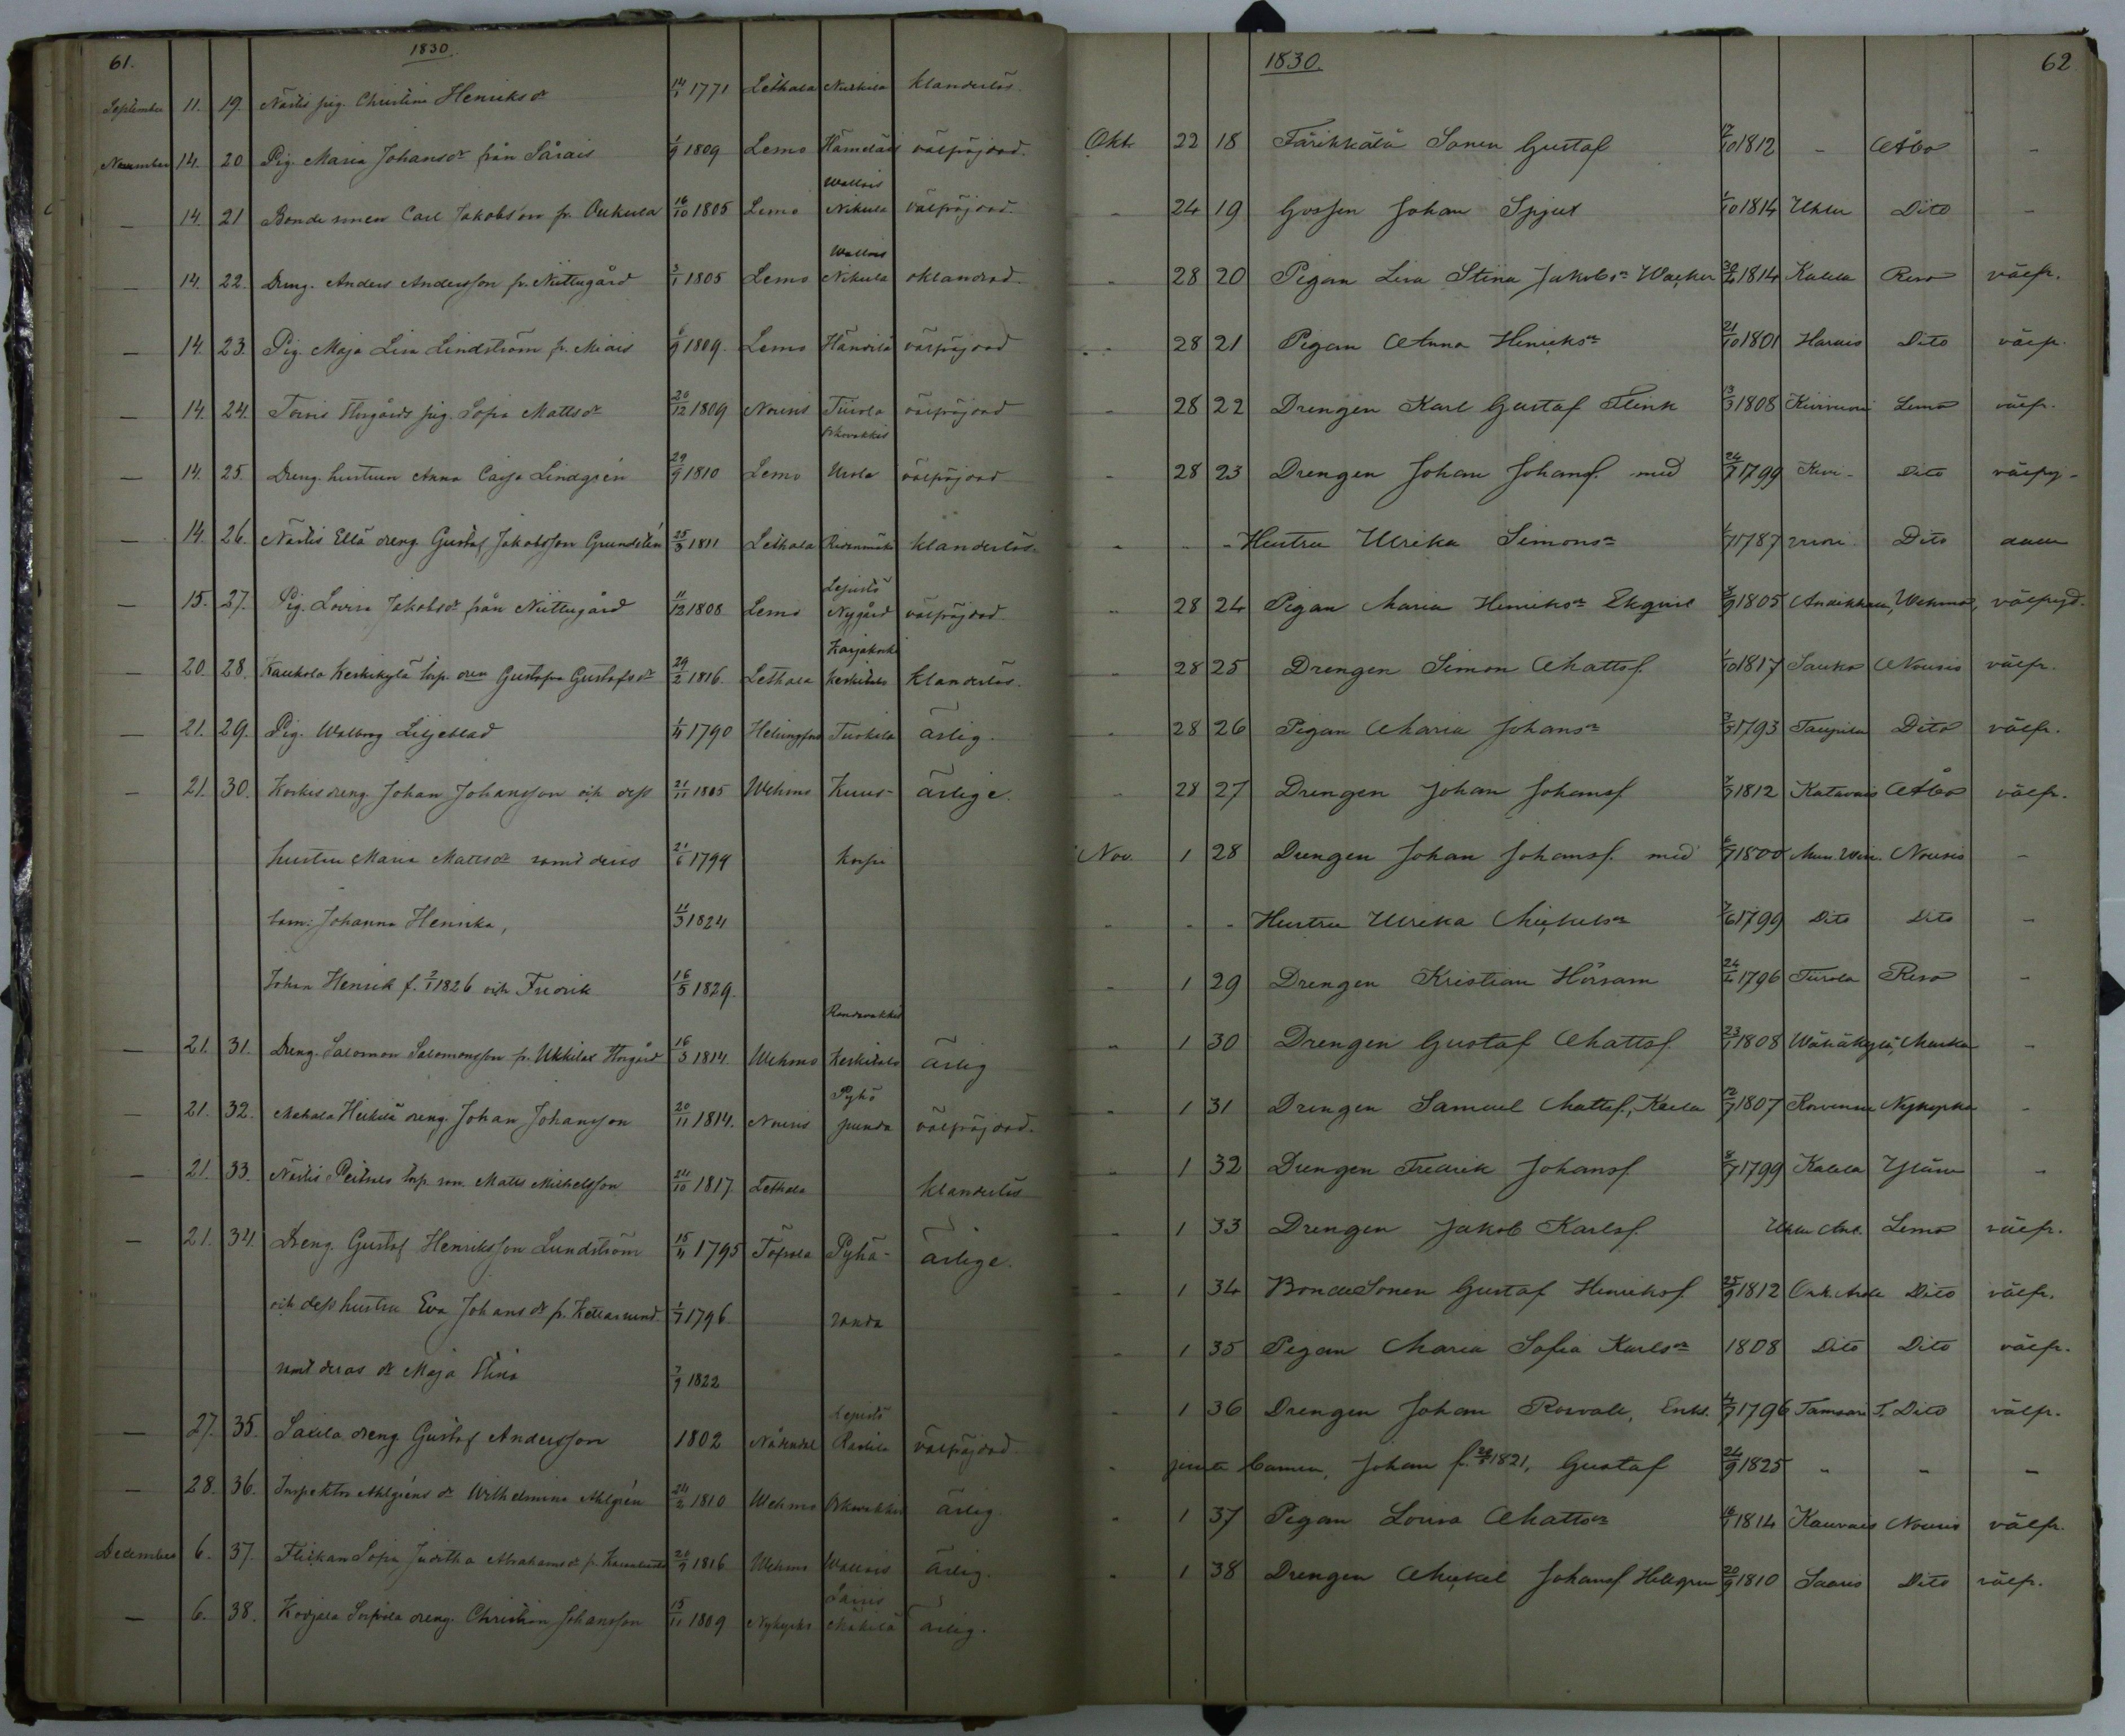 61.
1830.
September 11. 19. Nästis pig. Christina Henriks dr 14/1 1771 Lethala Nuskila klanderlös.
November 14. 20 Pig. Maria Johans dr från Särais 1/9 1809 Lemo välfräjdad.
Wallais
— 14. 21 Bonde sonen Carl Jakobsson fr. 16/10 1805 Lemo Nikula välfräjdad.
Wallais
— 14. 22. Dreng. Anders Andersson fr. Niittugård 3/1 1805 Lemo Nikula oklandrad.
— 14. 23. Pig. Maja Lisa Lindström fr. 6/9 1809. Lemo välfräjdad
— 14. 24. pig. Sofia Matts dr 20/12 1809 Nousis Tiirola välfräjdad
— 14. 25. Dreng. hustrun Anna Caisa Lindgrén 29/9 1810 Lemo Urola välfräjdad
— 14. 26. Nästis Ellä dreng Gustaf Jakobsson Grundelén 25/3 1811 Lethala klanderlös.
Lepistö
— 15. 27. Pig. Lovisa Jakobs dr från Niittugård 11/12 1808 Lemo Nygård välfräjdad.
— 20. 28. Kaukola Keskikylä torp. Gustafva Gustafs dr 29/2 1816. Lethala Keskitalo klanderlös.
— 21. 29. Pig. Walborg Liljeblad 1790 Helsingfors Tuskila ärlig.
— 21. 30. Korkis dreng. Johan Johansson och dess 21/11 1805 Wehmo Kuus- ärlige.
hustru Maria Matts dr samt deras 21/6 1794 korpi
barn: Johanna Henrika, 11/3 1824
Johan Henrik f. 2/1 1826 och Fredrik 16/5 1829.
— 21. 31. Dreng. Salomon Salomonsson fr. 16/3 1814. Wehmo Keskitalo ärlig
Pyhä
— 21. 32. Mahala Heikilä dreng. Johan Johansson 20/11 1814. Nousis välfräjdad.
— 21. 33. Nästis torp. son. Matts Michelsson 24/10 1817. Lethala klanderlös
— 21. 34. Dreng. Gustaf Henriksson Lundström 1795 Töfsala Pyhä- ärlige.
och dess hustru Eva Johans dr fr. 1/7 1796. ranta
samt deras dr Maja Stina 7/9 1822
Lepistö
— 27. 35. dreng Gustaf Andersson 1802 Nådendal välfräjdad
— 28. 36. Inspektor Ahlgréns dr Wilhelmina Ahlgrén 24/2 1810 Wehmo ärlig
December 6. 37. Flickan Sofia Juditha Abrahams dr fr. 20/9 1816 Wehmo Wallais ärlig.
— 6. 38. Korjala dreng. Christian Johansson 15/11 1809 Nykyrka Mäkilä ärlig.
62
1830.
Okt 22 18 Färikkälä Sonen Gustaf 17/10 1812 - Åbo -
- 24 19 Gossen Johan Spjut 1/10 1814 Uhlu Dito -
- 28 20 Pigan Lisa Stina Jakobs dr Wacker 1814 Kalela Reso välfr.
- 28 21 Pigan Anna Henriks dr 21/10 1801 Harais Dito välfr.
- 28 22 Drengen Karl Gustaf Flink 13/3 1808 Kivivuori Lemo välfr.
- 28 23 Drengen Johan Johansf. med 24/7 1799 Kivi- Dito välfrj-
- - - Hustru Ulrika Simons dr 1/7 1787 vuori Dito
- 28 24 Pigan Maria Henriks dr Ekqvist 1805 Wehmo, välfrejd.
- 28 25 Drengen Simon Mattsf. 1/10 1817 Sauko Nousis välfr.
- 28 26 Pigan Maria Johans dr 3/3 1793 Taipila Dito välfr.
- 28 27 Drengen Johan Johansf. 1812 Katavais Åbo välfr.
Nov. 1 28 Drengen Johan Johansf. med 6/7 1800 Nousis -
- - - Hustru Ulrika Mickels dr 1799 Dito Dito -
- 1 29 Drengen Kristian Hörsam 1796 Tiirola Reso -
- 1 30 Drengen Gustaf Mattsf. 23/1 1808 Wähäkylä, Masku -
- 1 31 Drengen Samuel Mattsf., 12/7 1807 Nykyrka -
- 1 32 Drengen Fredrik Johansf. 8/7 1799 Kalela Yläne -
- 1 33 Drengen Jakob Karlsf. Lemo välfr.
- 1 34 BondeSonen Gustaf Henriksf. 25/9 1812 Dito välfr.
- 1 35 Pigan Maria Sofia Karls dr 1808 Dito Dito välfr.
- 1 36 Drengen Johan Rosvall, Enkl. 1796 Tamsaari T. Dito välfr.
- jemte barnen, Johan f. 1821, Gustaf 24/9 1825 - - -
- 1 37 Pigan Lovisa Matts dr 1814 Kaurais Nousis välfr.
- 1 38 Drengen Mickel Johansf Hellgren 20/9 1810 Saaris Dito välfr.